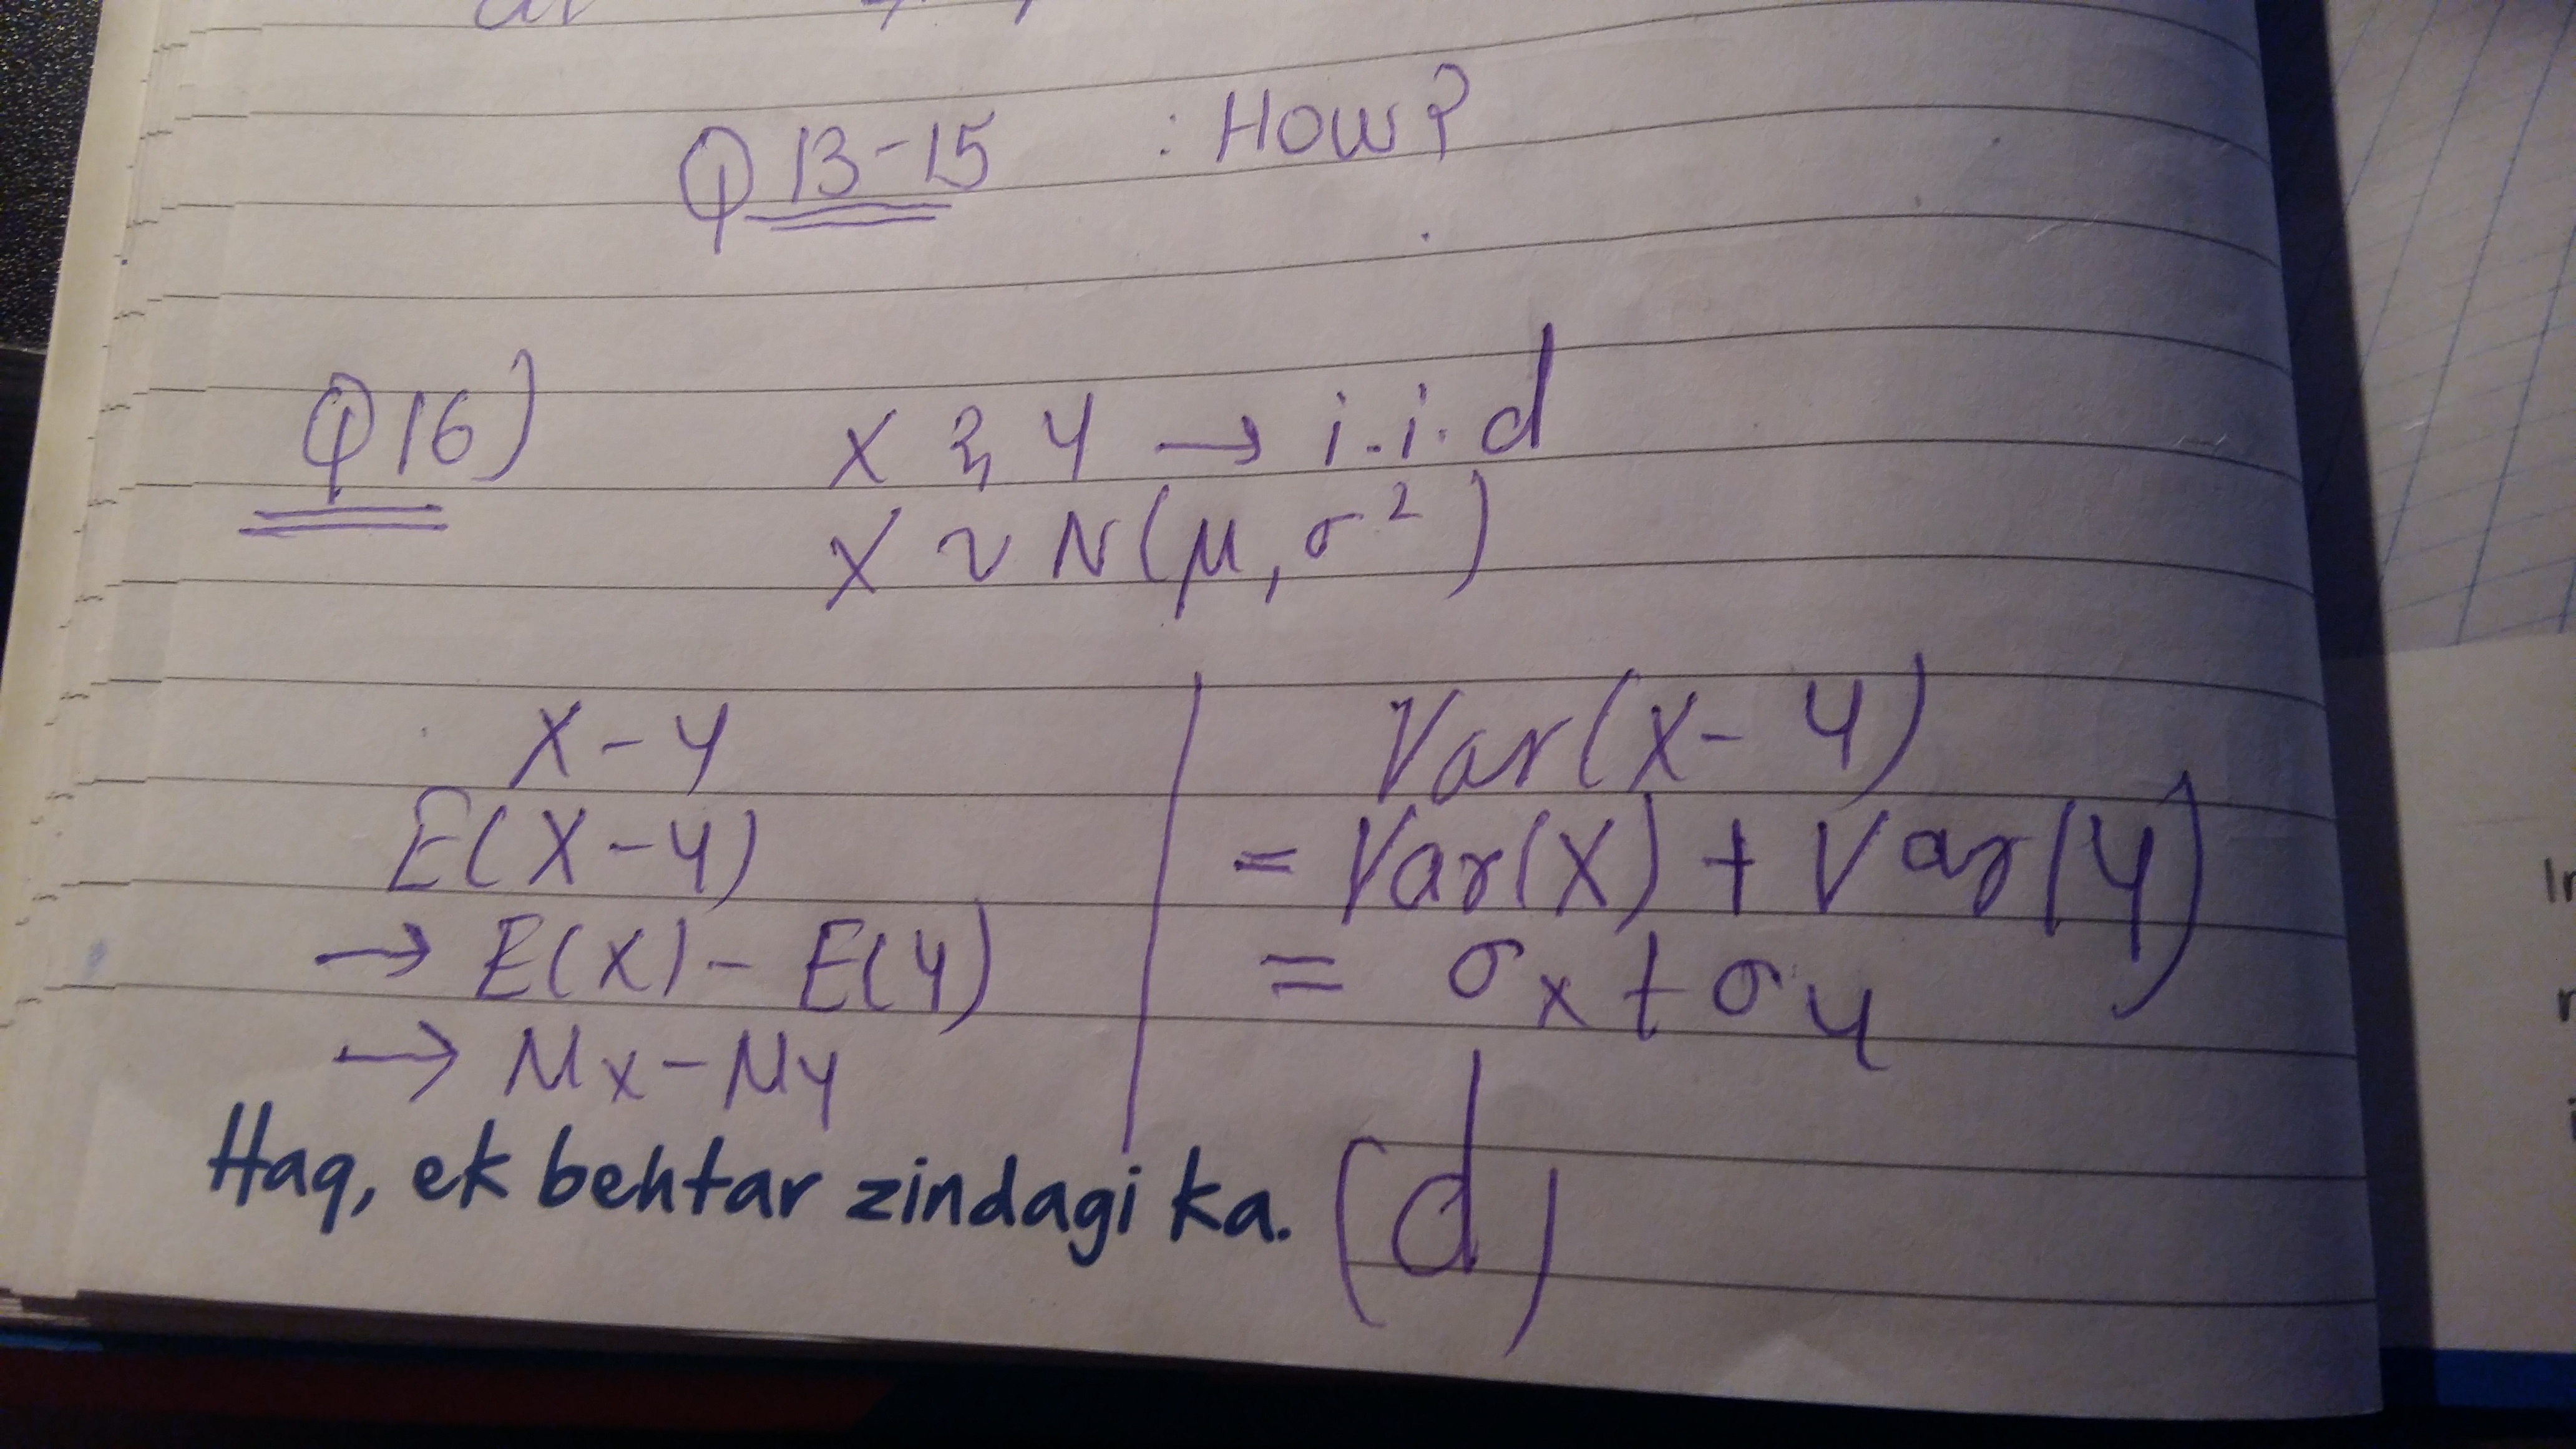 Q 13-15 : HOW?
Q16) X & Y → i.i.d
X ~ N(μ, σ²)
X - Y
E(X-Y)
→ E(X) - E(Y)
→ μx - μy
Var(X - Y)
= Var(X) + Var(Y)
= σx + σy
Haq, ek behtar zindagi ka.
(d)